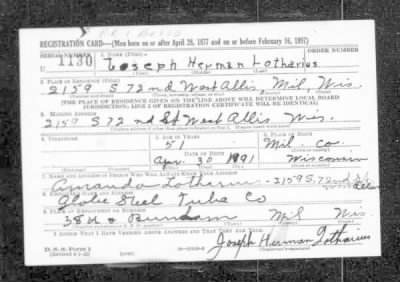 REGISTRATION CARD—(Men born on or after April 28, 1877 and on or before February 16, 1897)
SERIAL NUMBER 1. NAME (Print) ORDER NUMBER
U 1130 Joseph Herman Lotharius
2. PLACE OF RESIDENCE (Print)
2159 S. 72nd West Allis, Mil, Wis.
[THE PLACE OF RESIDENCE GIVEN ON THE LINE ABOVE WILL DETERMINE LOCAL BOARD
JURISDICTION; LINE 2 OF REGISTRATION CERTIFICATE WILL BE IDENTICAL]
3. MAILING ADDRESS
2159 S. 72nd St West Allis Wis.
[Mailing address if other than place indicated on line 2. If same insert word same]
4. TELEPHONE 5. AGE IN YEARS 6. PLACE OF BIRTH
51 Mil. Co.
DATE OF BIRTH
Apr. 30 1891 Wisconsin
7. NAME AND ADDRESS OF PERSON WHO WILL ALWAYS KNOW YOUR ADDRESS
Amanda Lotharius - 2159 S. 72nd St West Allis
8. EMPLOYER'S NAME AND ADDRESS
Globe Steel Tube Co
9. PLACE OF EMPLOYMENT OR BUSINESS
38th & Burnham Mil Wis.
I AFFIRM THAT I HAVE VERIFIED ABOVE ANSWERS AND THAT THEY ARE TRUE.
D. S. S. Form 1
(Revised 4-1-42) (over)
Joseph Herman Lotharius